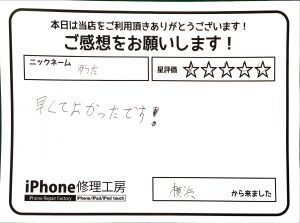 本日は当店をご利用頂きありがとうございます！
ご感想をお願いします！
ニックネーム
星評価 ☆☆☆☆☆
早くてよかったです！
iPhone修理工房
iPhone Repair Factory iPhone/iPad/iPod touch
横浜 から来ました